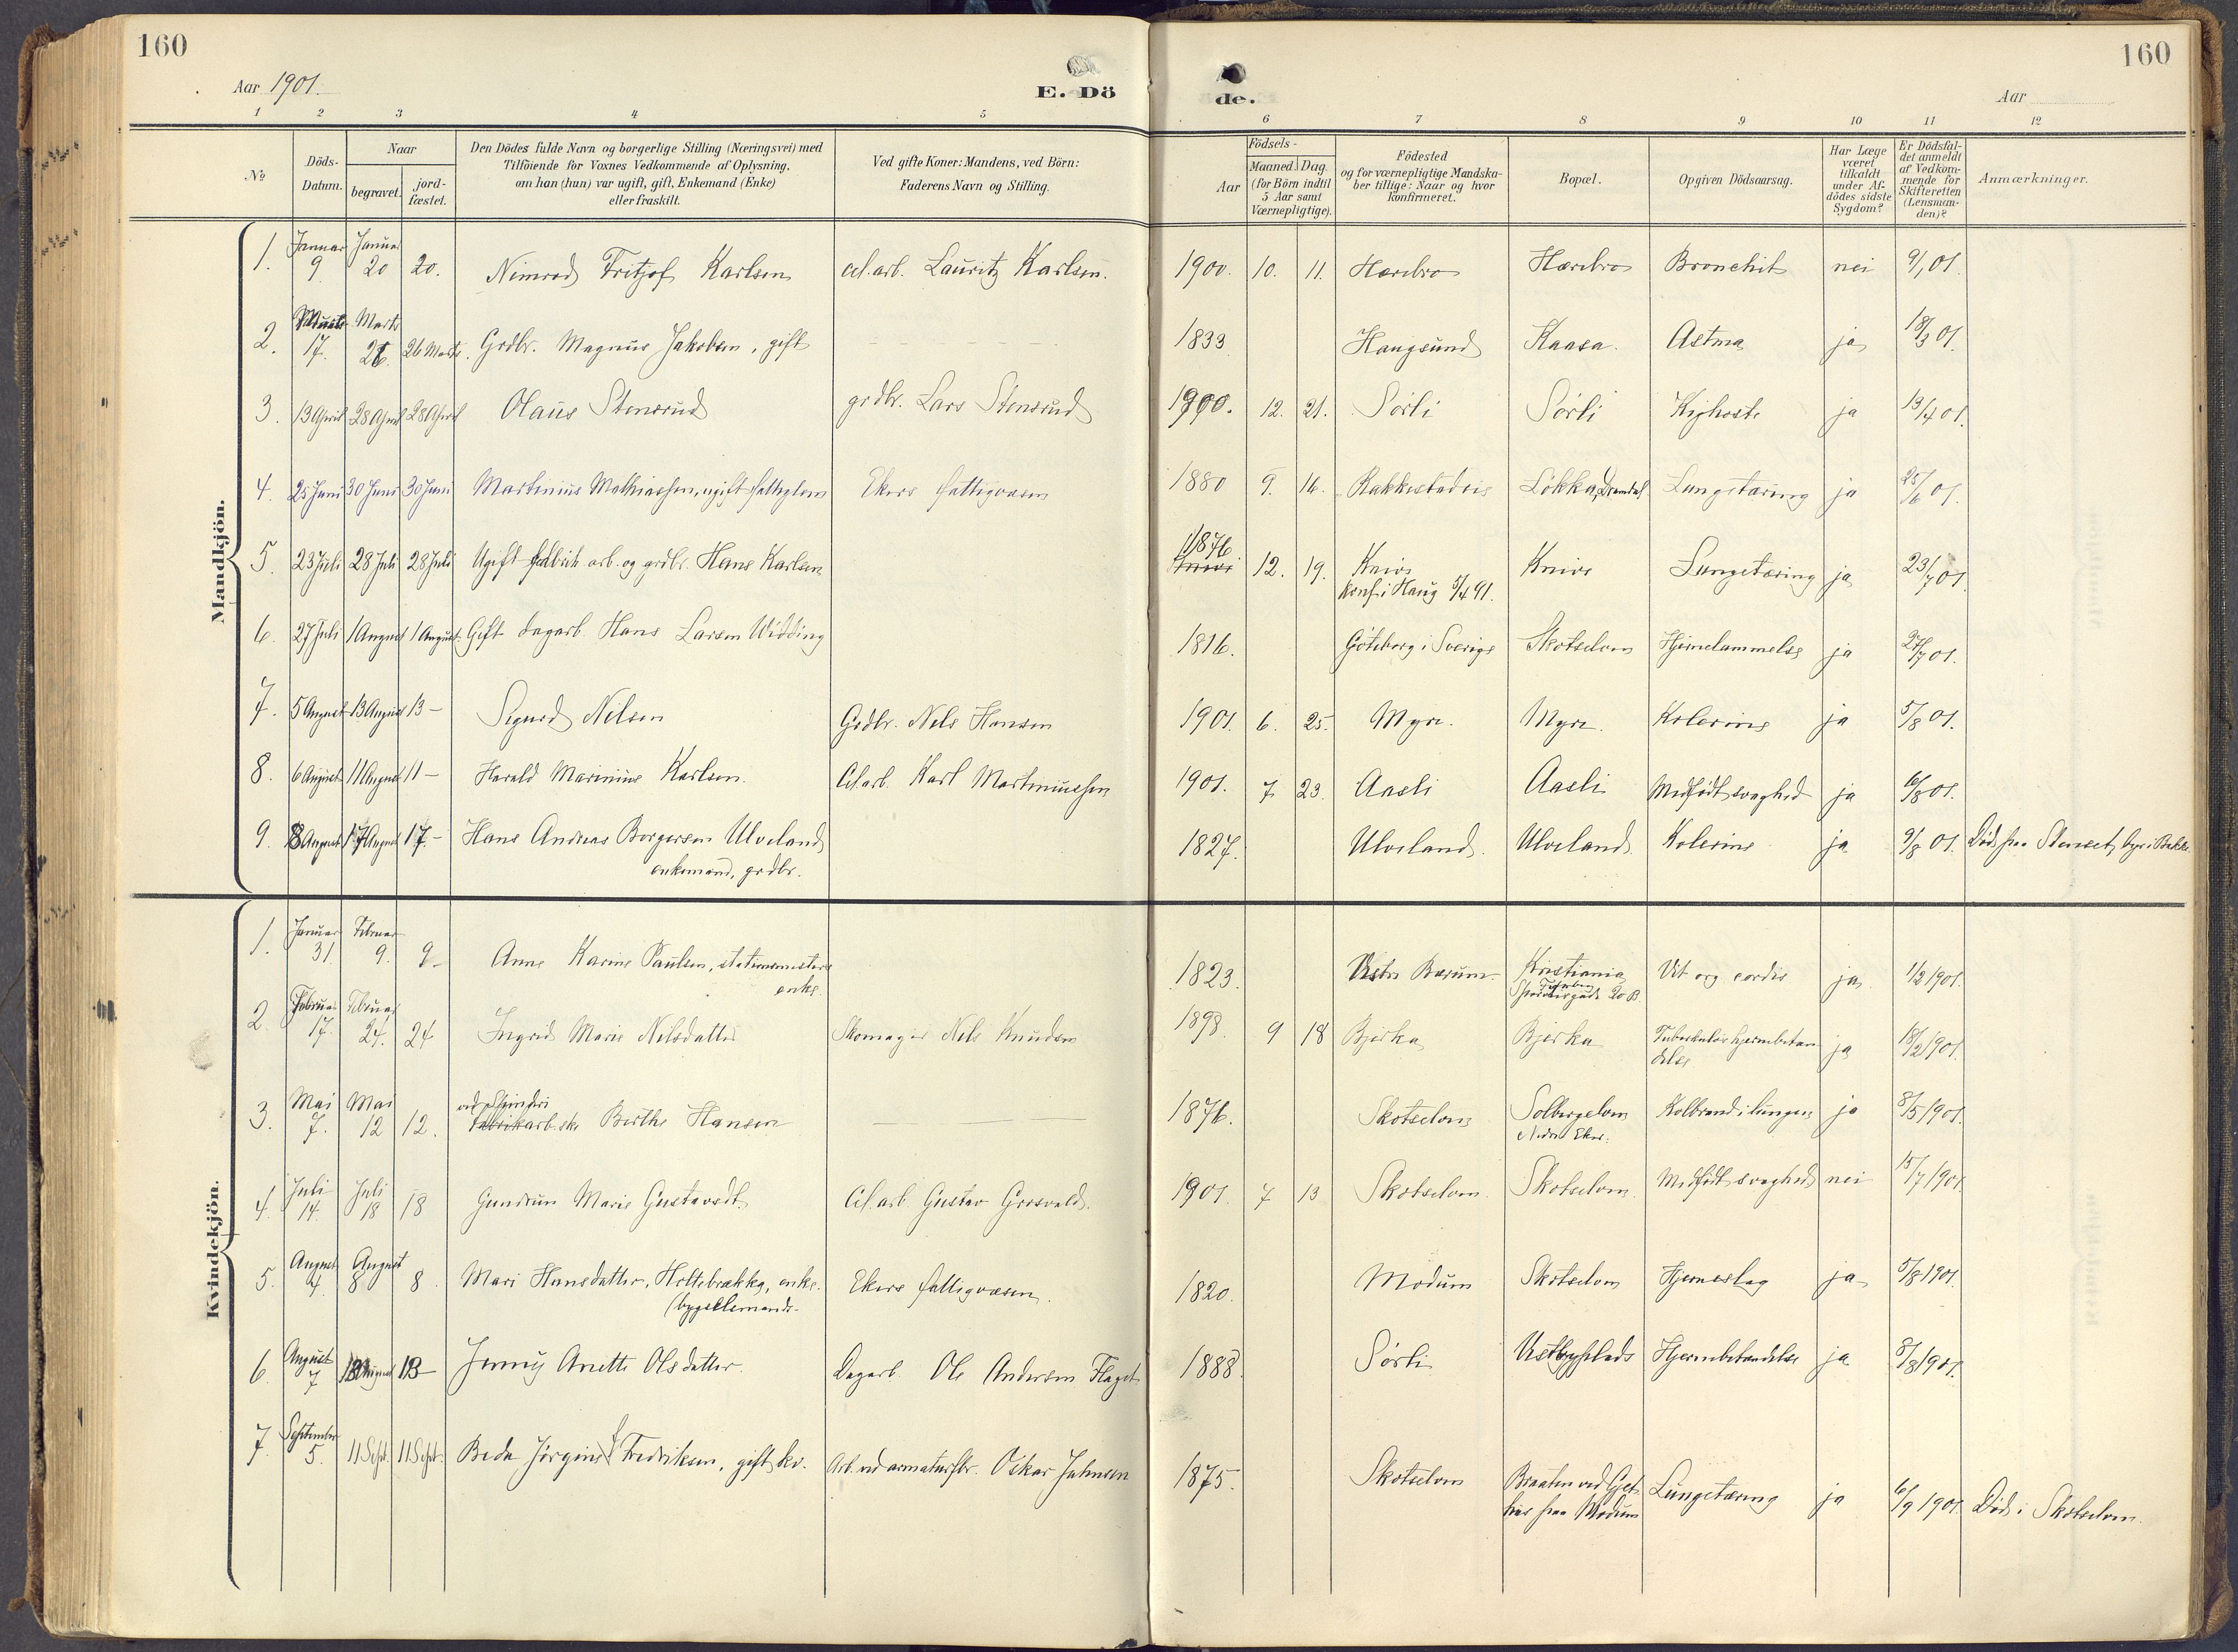 160
160
Aar 1901.
E. Dö
de.
Aar
1 2 3 4 5 6 7 8 9 10 11 12
No
Döds-
Datum.
Naar
begravet.
jord-
fæstet.
Den Dödes fulde Navn og borgerlige Stilling (Næringsvei) med
Tilföiende for Voxnes Vedkommende af Oplysning,
om han (hun) var ugift, gift, Enkemand (Enke)
eller fraskilt.
Ved gifte Koner: Mandens, ved Börn:
Faderens Navn og Stilling.
Födsels-
Aar
Maaned. Dag.
(for Börn indtil
5 Aar samt
Værnepligtige).
Födested
og for værnepligtige Mandska-
ber tillige: Naar og hvor
konfirmeret.
Bopæl.
Opgiven Dödsaarsag.
Har Læge
været
tilkaldt
under Af-
dödes sidste
Sygdom?
Er Dödsfal-
det anmeldt
af Vedkom-
mende for
Skifteretten
(Lensman-
den)?
Anmærkninger.
Mandkjön.
1. Januar 9. Januar 20 20. Nimrod Fritjof Karlsen cel.arb. Lauritz Karlsen. 1900. 10. 11. Horibro Horibro Bronchit nei 9/1 01.
2. Marts 17. Marts 26. 26 Marts. Grdbr. Magnus Jakobsen, gift 1833 Haugsund Kaasa. Astma ja 18/3 01.
3. 13 April 28 April 28 April Olaus Stensrud grdbr. Lars Stensrud 1900. 12. 21. Sörli Sörli Kighoste ja 13/4 01.
4. 25 Juni 30 Juni 30 Juni Martinius Mathiassen, ugift fattiglem Ekers fattigvæsen 1880 9. 16. Rakkestadeie Lökka, Lungetæring ja 25/6 01.
5. 23 Juli 28 Juli 28 Juli Ugift fabrik arb. og grdbr. Hans Karlsen 1876 12. 19. Knive Knive Lungetæring ja 23/7 01.
konf. i Haug 5/4 91.
6. 27 Juli 1 August 1 August. Gift dagarb. Hans Larsen Widding 1816. Göteborg i Sverige Skotselven Hjernelammelse ja 27/7 01.
7. 5 August 13 August 13 – Sigurd Nilsen Grdbr. Nels Hansen 1901. 6. 25. Myre. Myre. Kolerine ja 5/8 01.
8. 6 August 11 August 11 – Harald Marinius Karlsen. Cel.arb. Karl Martiniussen 1901. 7 23. Aasli Aasli Medfödt svaghed ja 6/8 01.
9. 8 August 17 August 17. – Hans Andreas Borgersen Ulveland 1827. Ulveland. Ulveland Kolerine ja 9/8 01. Död paa Stenset,
enkemand, grdbr.
Kvindekjön.
1. Januar 31 Februar 9. 9 – Anne Karine Paulsen, stationsmesters 1823. Vestre Bærum Kristiania Vit. org. cordis ja 1/2 1901.
enke.
2. Februar 17. Februar 24. 24 Ingrid Marie Nilsdatter Skomager Nels Knudsen 1898. 9 18 Bjerka Bjerka Tuberkulös hjernebetæn ja 18/2 1901.
delse
ved Spinderi
3. Mai 7. Mai 12 12. Fabrikarb.ske Berthe Hansen 1876. Skotselven Solbergelven Kolbrand i lungen ja 8/5 1901.
Nedre Eker.
4. Juli 14. Juli 18 18 Gundrun Marie Gustavsdt. Cel.arb. Gustav Gresvold. 1901. 7 13 Skotselven. Skotselven. Medfödt svaghed nei 15/7 1901.
5. August 4. August 8 8. Mari Hansdatter, Holtebrække, enke. Ekers fattigvæsen. 1820. Modum Skotselven Hjerneslag ja 5/8 1901.
(bygselsmands.
6. August 7 13 August 13 – Jenny Anette Olsdatter. Dagarb. Ole Andersen Flaget 1888. Sörli Hjernebetændelse ja 8/8 1901.
7. September 5. 11 Sept. 11 Sept. Beda Jörgine Fredriksen, gift kv. Arb. ved armaturfbr. Oskar Johnsen 1875. Skotselven Braaten ved Gjet- Lungetæring ja 6/9 1901. Död i Skotselven.
hus paa Modum